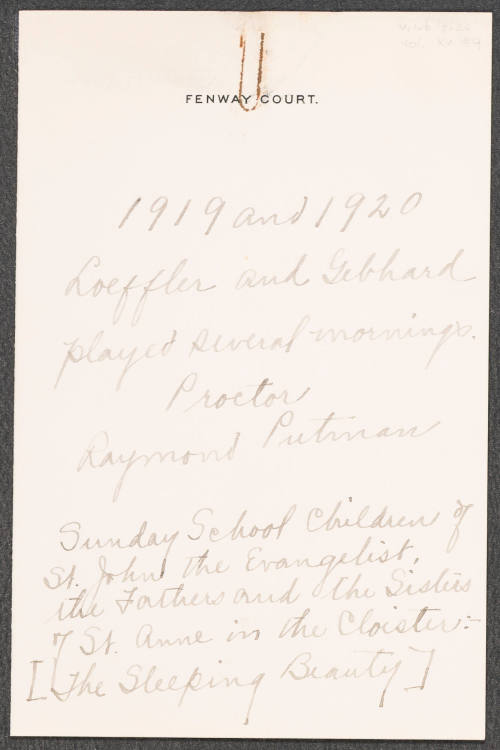 FENWAY COURT.
1919 and 1920
Loeffler and Gebhard
played several mornings.
Proctor
Raymond Putman
Sunday School Children of
St. John the Evangelist,
the Fathers and the Sisters
of St. Anne in the Cloister:-
[The Sleeping Beauty]